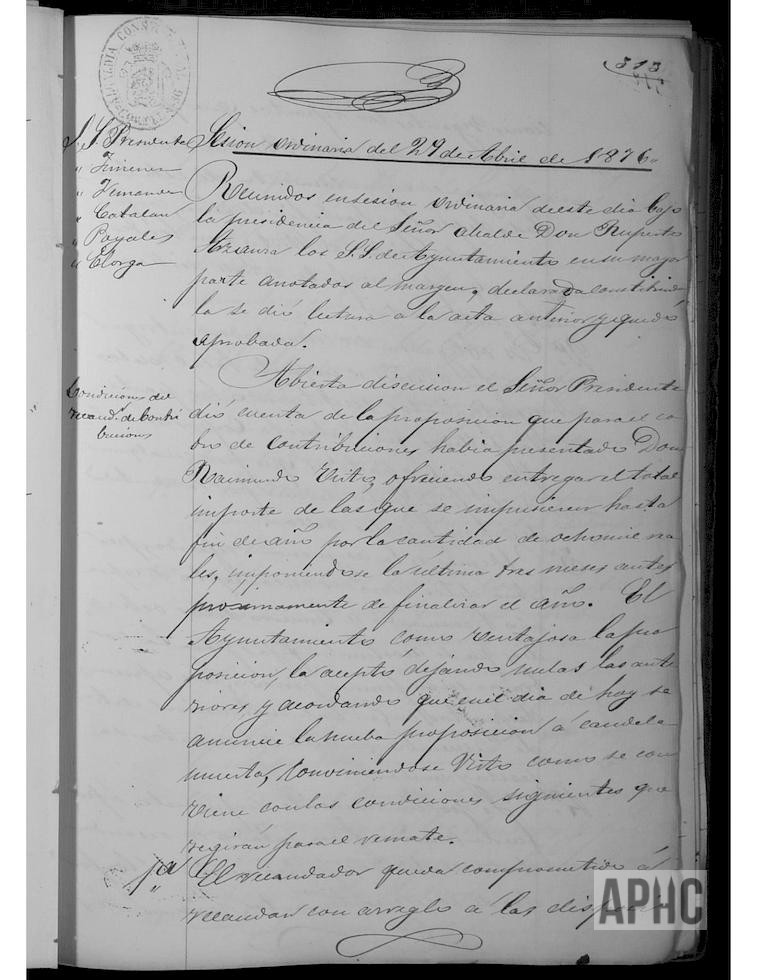 313
S. S. Presidente
" Jimenez
" Fernandez
" Catalan
" Payales
" Elorga
Sesion ordinaria del 29 de Abril de 1876.
Reunidos en sesion ordinaria de este dia bajo
la presidencia del Señor alcalde Don Ruperto
Azsaura los S.S. de Ayuntamiento en su mayor
parte anotados al margen, declarada constituida
la se dió lectura a la acta anterior y quedó
aprobada.
Condiciones del
recaudr. de Contri
buciones
Abierta discusion el Señor Presidente
dió cuenta de la proposicion que para el co
bro de contribuciones habia presentado Don
Raimundo Visto, ofreciendo entregar el total
importe de las que se impusieren hasta
fin de año por la cantidad de ocho mil rea
les, imponiendose la última tres meses antes
proximamente de finalizar el año. El
Ayuntamiento como ventajosa la pro
posicion, la aceptó dejando nulas las ante
riores, y acordando que en el dia de hoy se
anuncie la nueba proposicion á candela
muerta, conviniendose Visto como se con
viene con las condiciones siguientes que
regirán para el remate.
1ª El recaudador queda comprometido á
recaudar con arreglo á las disposi
APHC